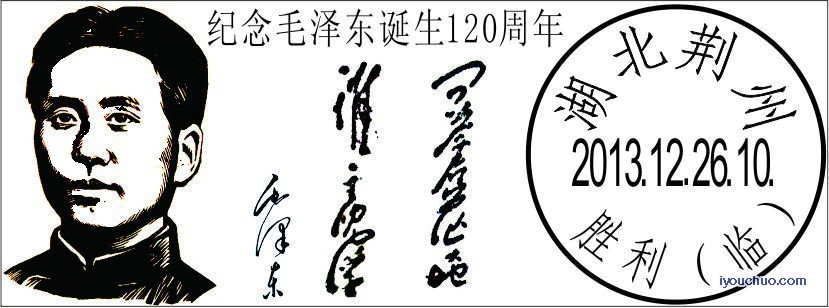 纪念毛泽东诞生120周年
问苍茫大地
谁主沉浮
毛泽东
湖北荆州
2013.12.26.10.
胜利（临）
iyouchuo.com